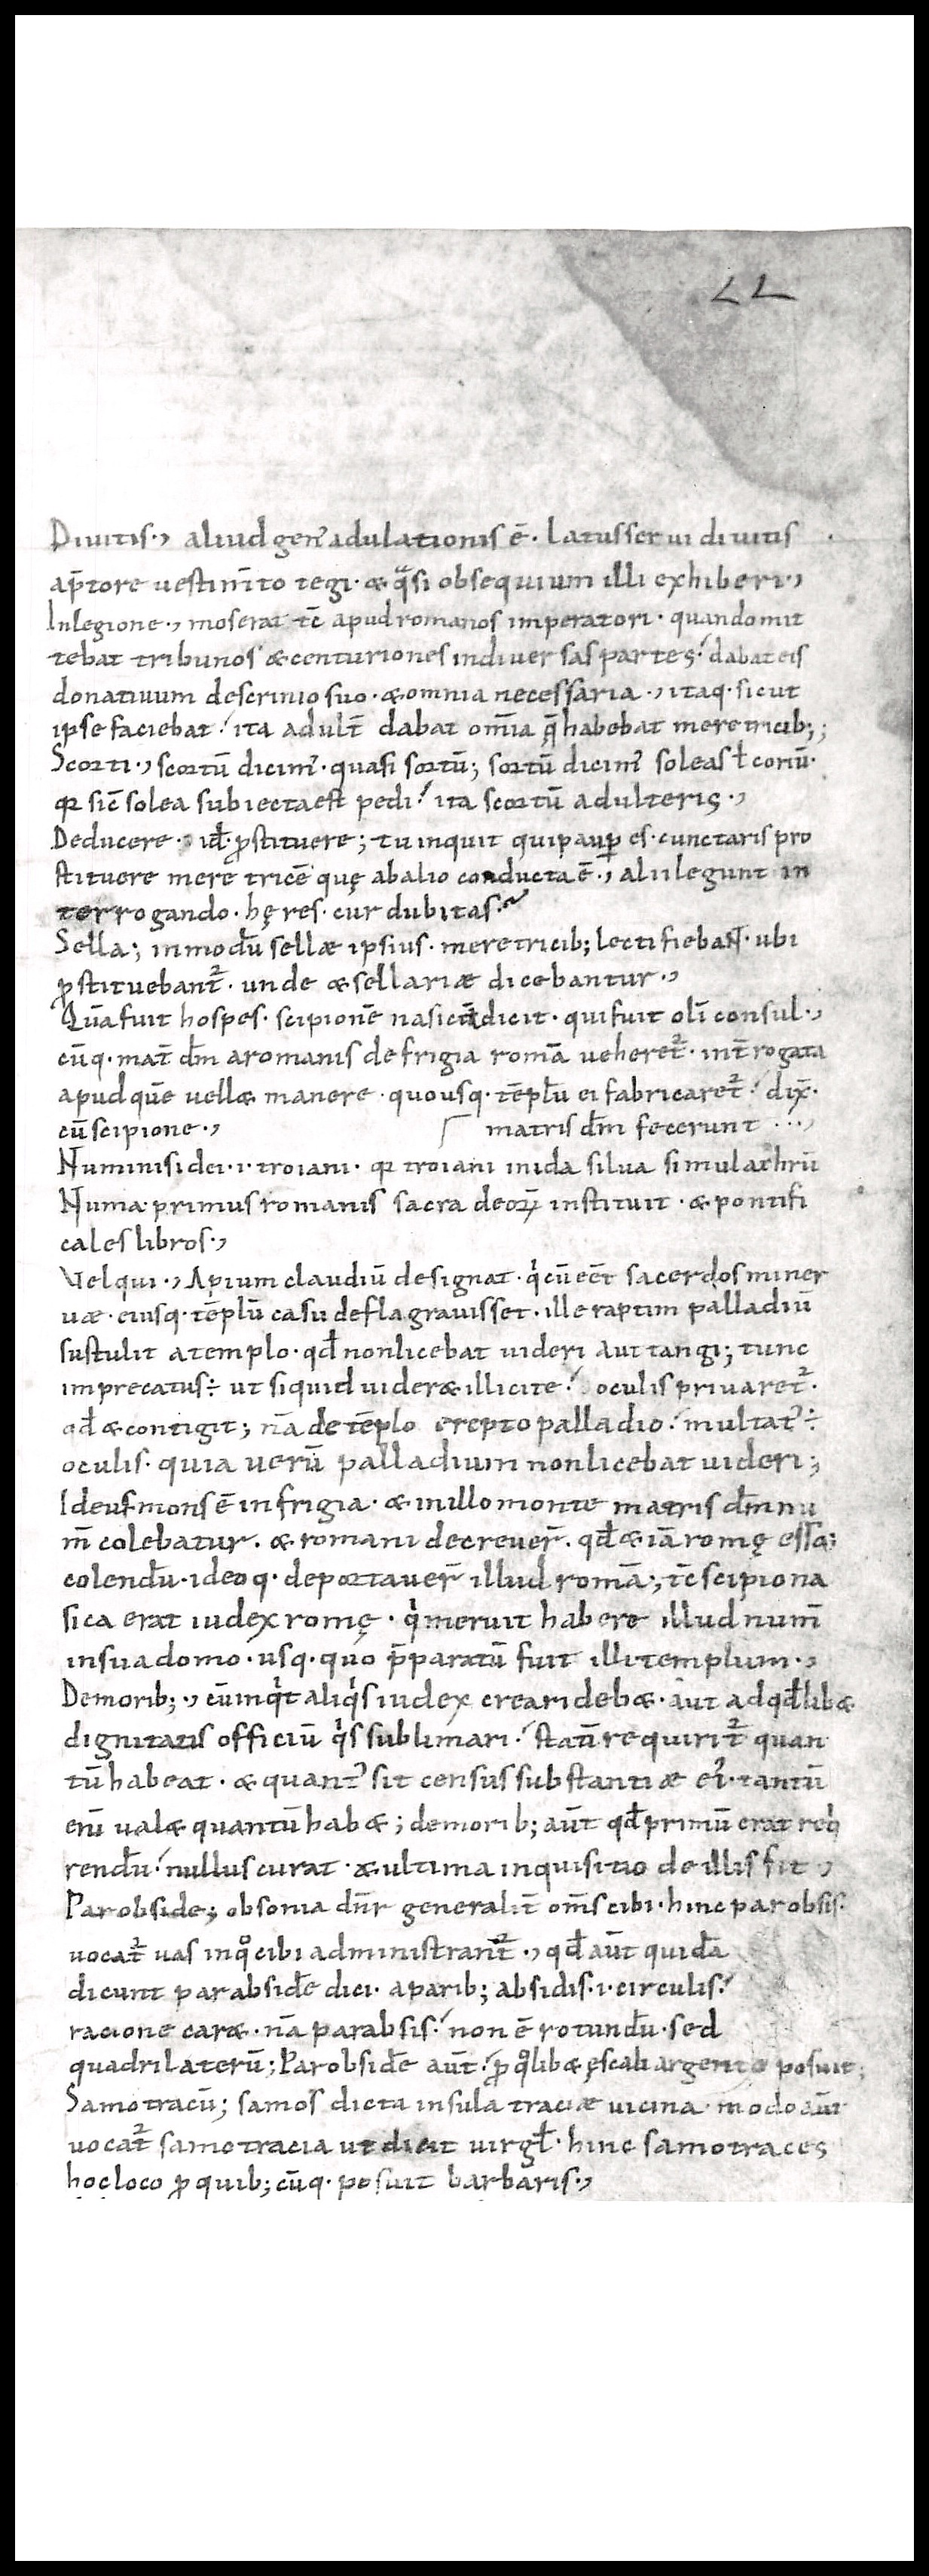 LL
Diuitis·, aliud gen᾽ adulationis ē· latus serui diuitis
ap̄tore uestim̄to tegi· & q̄si obsequium illi exhiberi·,
In legione·, mos erat tc̄ apud romanos imperatori· quando mit
tebat tribunos & centuriones in diuersas partes· dabat eis
donatiuum de scrinio suo· & omnia necessaria·, itaq· sicut
ipse faciebat ita adult̄ dabat om̄ia q̄ habebat meretricib;;
Scorti·, scortū dicim᾽· quasi sortū; sortū dicim᾽ soleas ł coriū·
qr sic̄ solea subiecta est pedi ita scortū adulteris·,
Deducere· id̄· ꝓstituere; tu inquit qui paup̄ es· cunctaris pro
stituere meretricē quę ab alio conducta ē·, alii legunt in
terrogando· hęres· cur dubitas·
Sella; in mod̄u sellæ ipsius· meretricib; lecti fiebant· ubi
ꝓstituebant᷑· unde & sellariæ dicebantur·,
Quā fuit hospes· scipionē nasicā dicit· qui fuit oli̅ consul·,
cūq· mat̄ d̄m a romanis de frigia romā ueheret᷑· int̄rogata
apud quē uell& manere· quousq· tēplū ei fabricaret᷑ dix̄·
cū scipione·, matris d̄m fecerunt ···,
Numinis idei·i· troiani· qr troiani in ida silua simulachrū
Numa primus romanis sacra deoꝝ instituit· & pontifi
cales libros·,
Vel qui·, Apium claudiū designat· q̍ cū eēt sacerdos miner
uæ· eiusq· tēplū casu deflagrauisset· ille raptim palladiū
sustulit a templo· qd̄ non licebat uideri aut tangi; tunc
imprecatus÷ ut si quid uider& illicite oculis priuaret᷑·
qd̄ & contigit; nā de tēplo erepto palladio multat᾽÷
oculis· quia uerū palladium non licebat uideri;
Ideus mons ē in frigia· & in illo monte matris d̄m nu
m̄ colebatur· & romani decreuer̄· qd̄ & iā romę ess&
colend̄u· ideoq· deportauer̄ illud romā·; tc̄ scipio na
sica erat iudex romę· q̍ meruit habere illud num̄
in sua domo· usq· quo p̄paratū fuit illi templum·,
De morib;·, cūinq̍t aliq̍s iudex creari deb&· aut ad qd̄lib&
dignitatis officiū q̍s sublimari statī requirit᷑ quan
tū habeat· & quant᾽ sit census substantiæ ei᾽· tantū
enī ual& quantū hab&; de morib; aūt qd̄ primū erat req̍
rend̄u nullus curat· & ultima inquisitio de illis fit·,
Parobside; obsonia dn̄r generalit̄ om̄s cibi· hinc parobsis·
uocat᷑ uas in qͦ cibi administrant᷑·, qd̄ aūt quid̄a
dicunt parabsid̄e dici· a parib; absidis·i· circulis
racione car&· nā parabsis non ē rotund̄u· sed
quadrilaterū; Parobsid̄e aūt ꝓ qͦlib& ęscali argento posuit;
Samotracū; samos dicta insula traciæ uicina· modo aūt
uocat᷑ samotracia ut dicit uirgł· hinc samotraces
hoc loco ꝓ quib; cūq· posuit barbaris·,